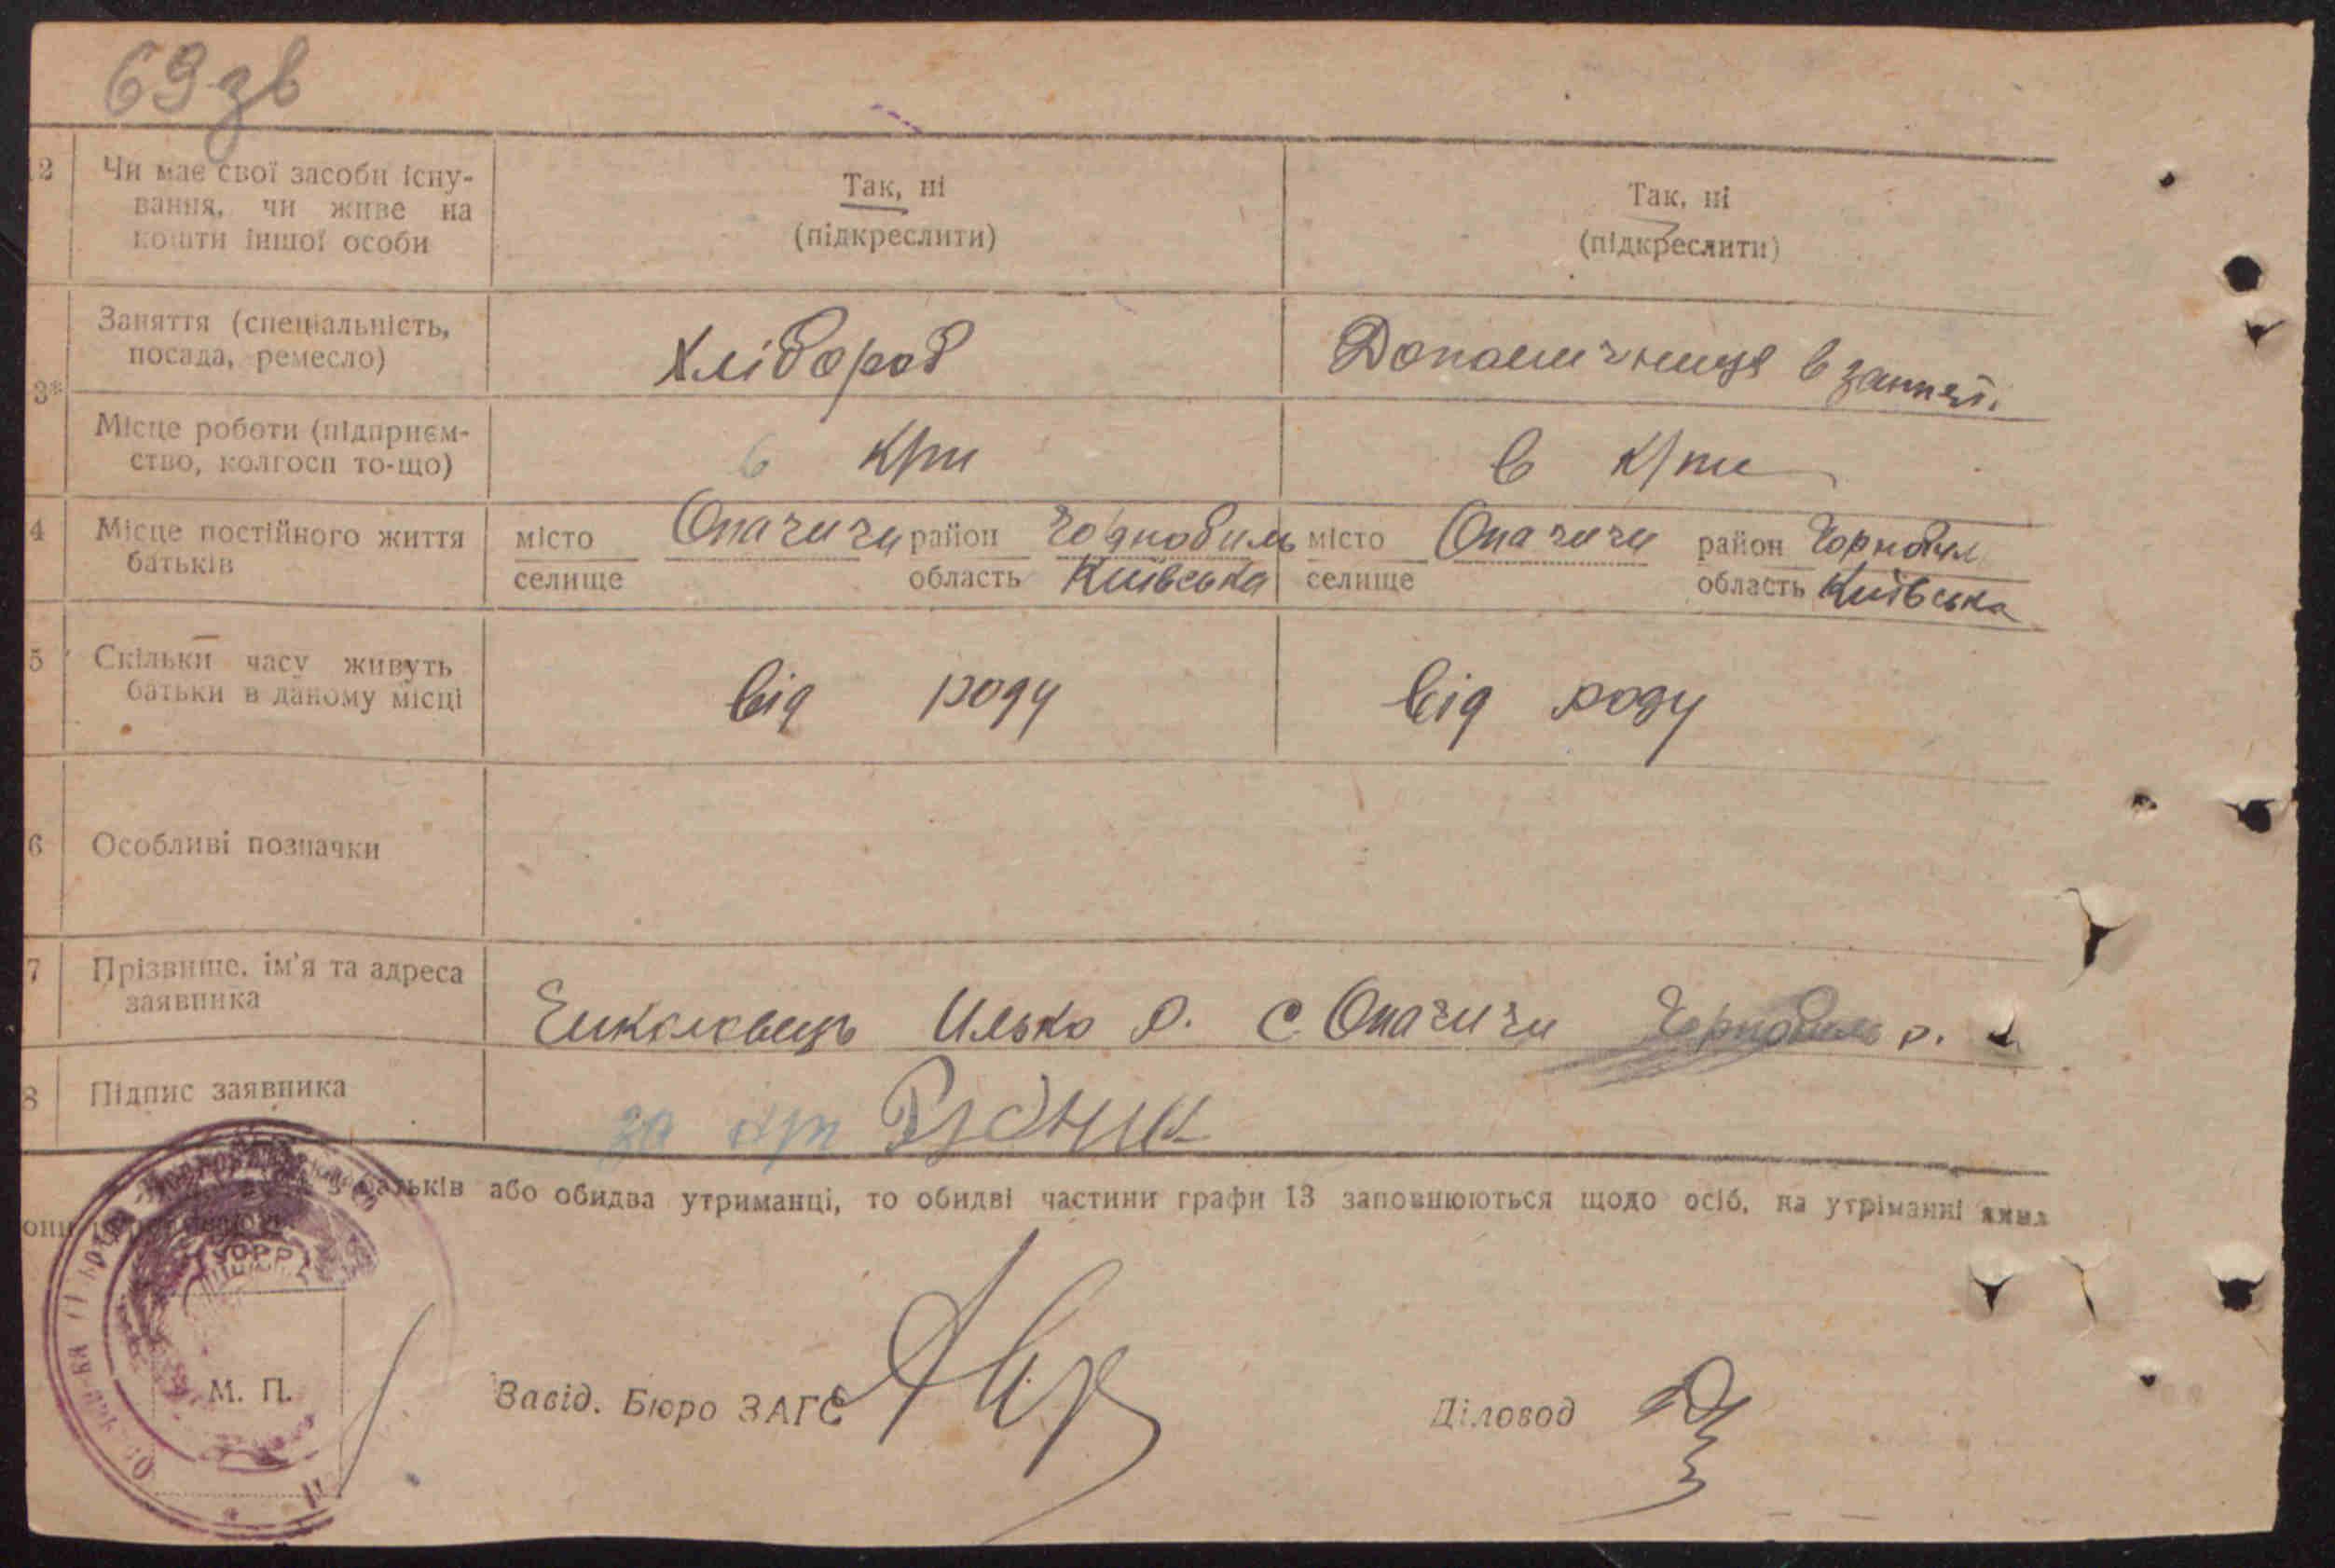 69 зв
12 Чи має свої засоби існу-
вання, чи живе на
кошти іншої особи
Так, ні
(підкреслити)
Так, ні
(підкреслити)
3*
Заняття (спеціальність,
посада, ремесло)
Хлібороб
в занят.
Місце роботи (підприєм-
ство, колгосп то-що)
в к/т
в к/т
4 Місце постійного життя
батьків
місто Опачичи район Чорнобиль
селище область Київська
місто Опачичи район Чорнобил
селище область Київська
5 Скільки часу живуть
батьки в даному місці
від роду
від роду
6 Особливі позначки
7 Прізвище, ім'я та адреса
заявника
Илько с. Опачичи Чорнобиль р.
8 Підпис заявника
за
батьків або обидва утриманці, то обидві частини графи 13 заповнюються щодо осіб, на утріманні яких
УСРР
М. П.
Завід. Бюро ЗАГС
Діловод